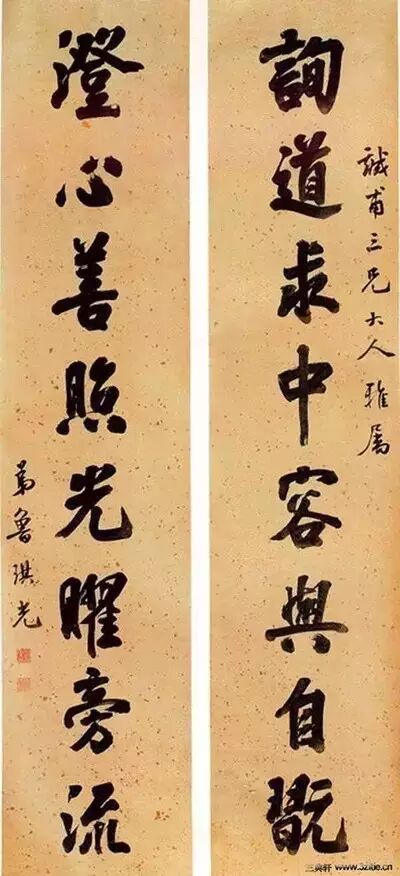 誠甫三兄大人雅属
詢道求中容與自翫
澄心善照光曜旁流
弟魯琪光
三典轩